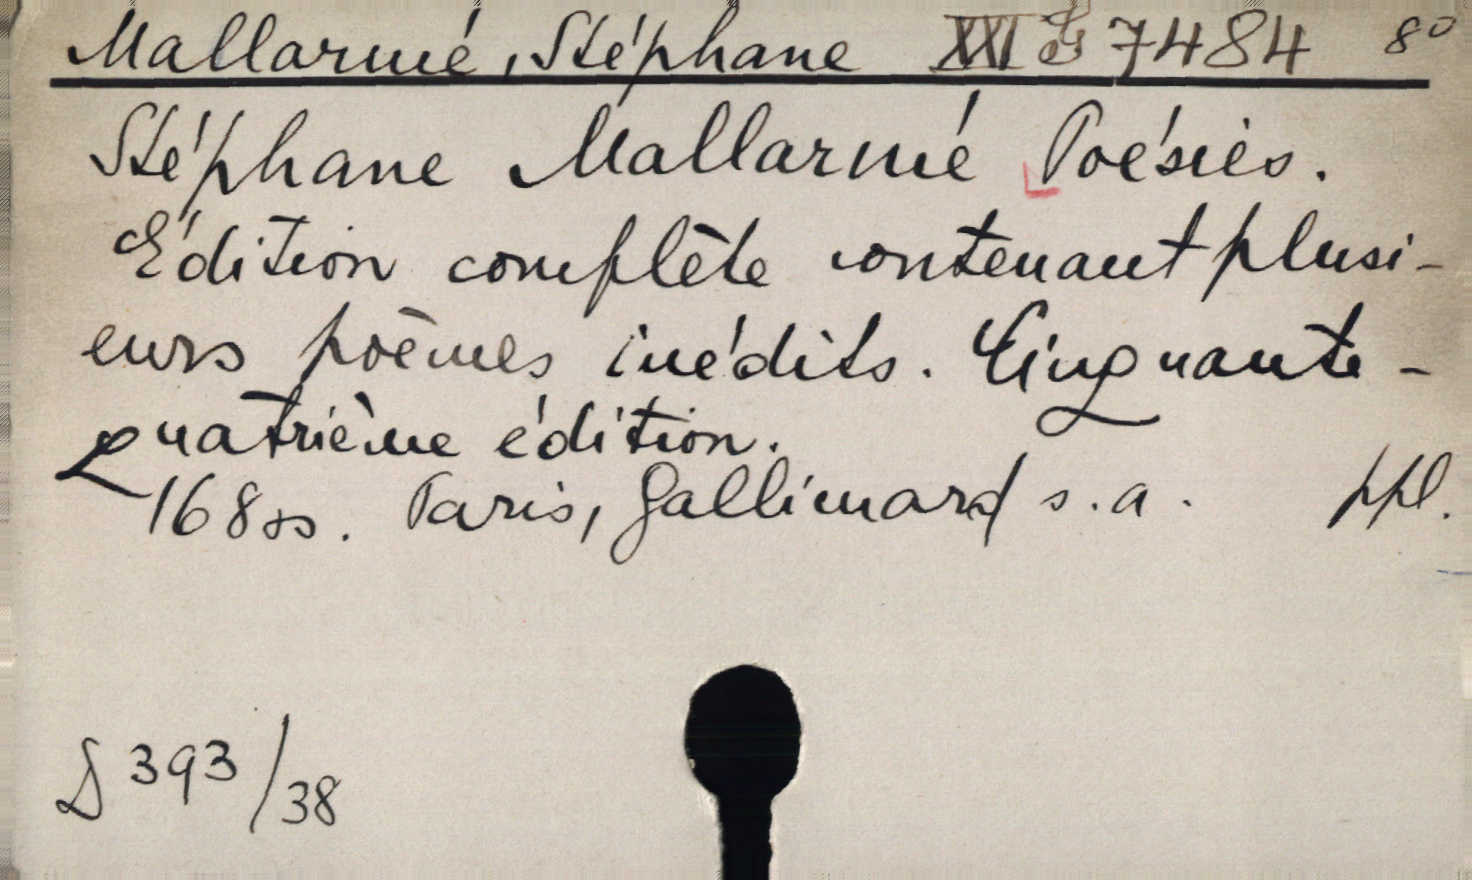 Mallarmé, Stéphane XXI 7484 8°
Stéphane Mallarmé Poésies.
Édition complète contenant plusi-
eurs poèmes inédits. Cinquante-
quatrième édition.
168 ss. Paris, Gallimard s.a. ppl.
D 393/38